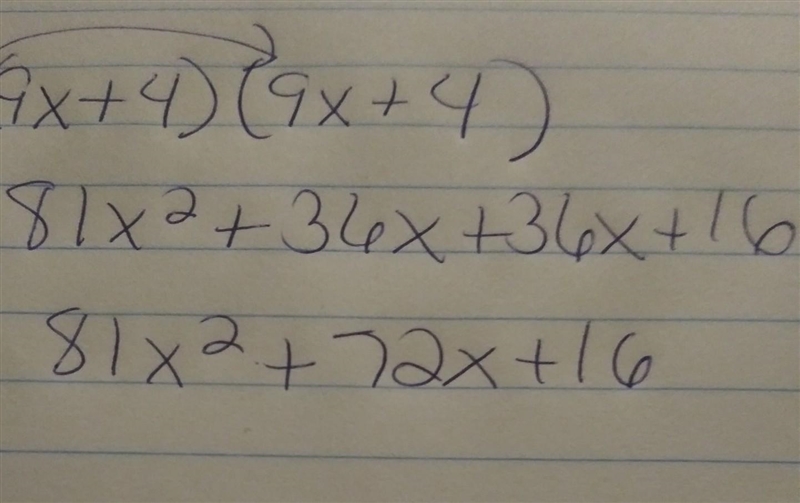 (9x+4)(9x+4)
81x²+36x+36x+16
81x²+72x+16